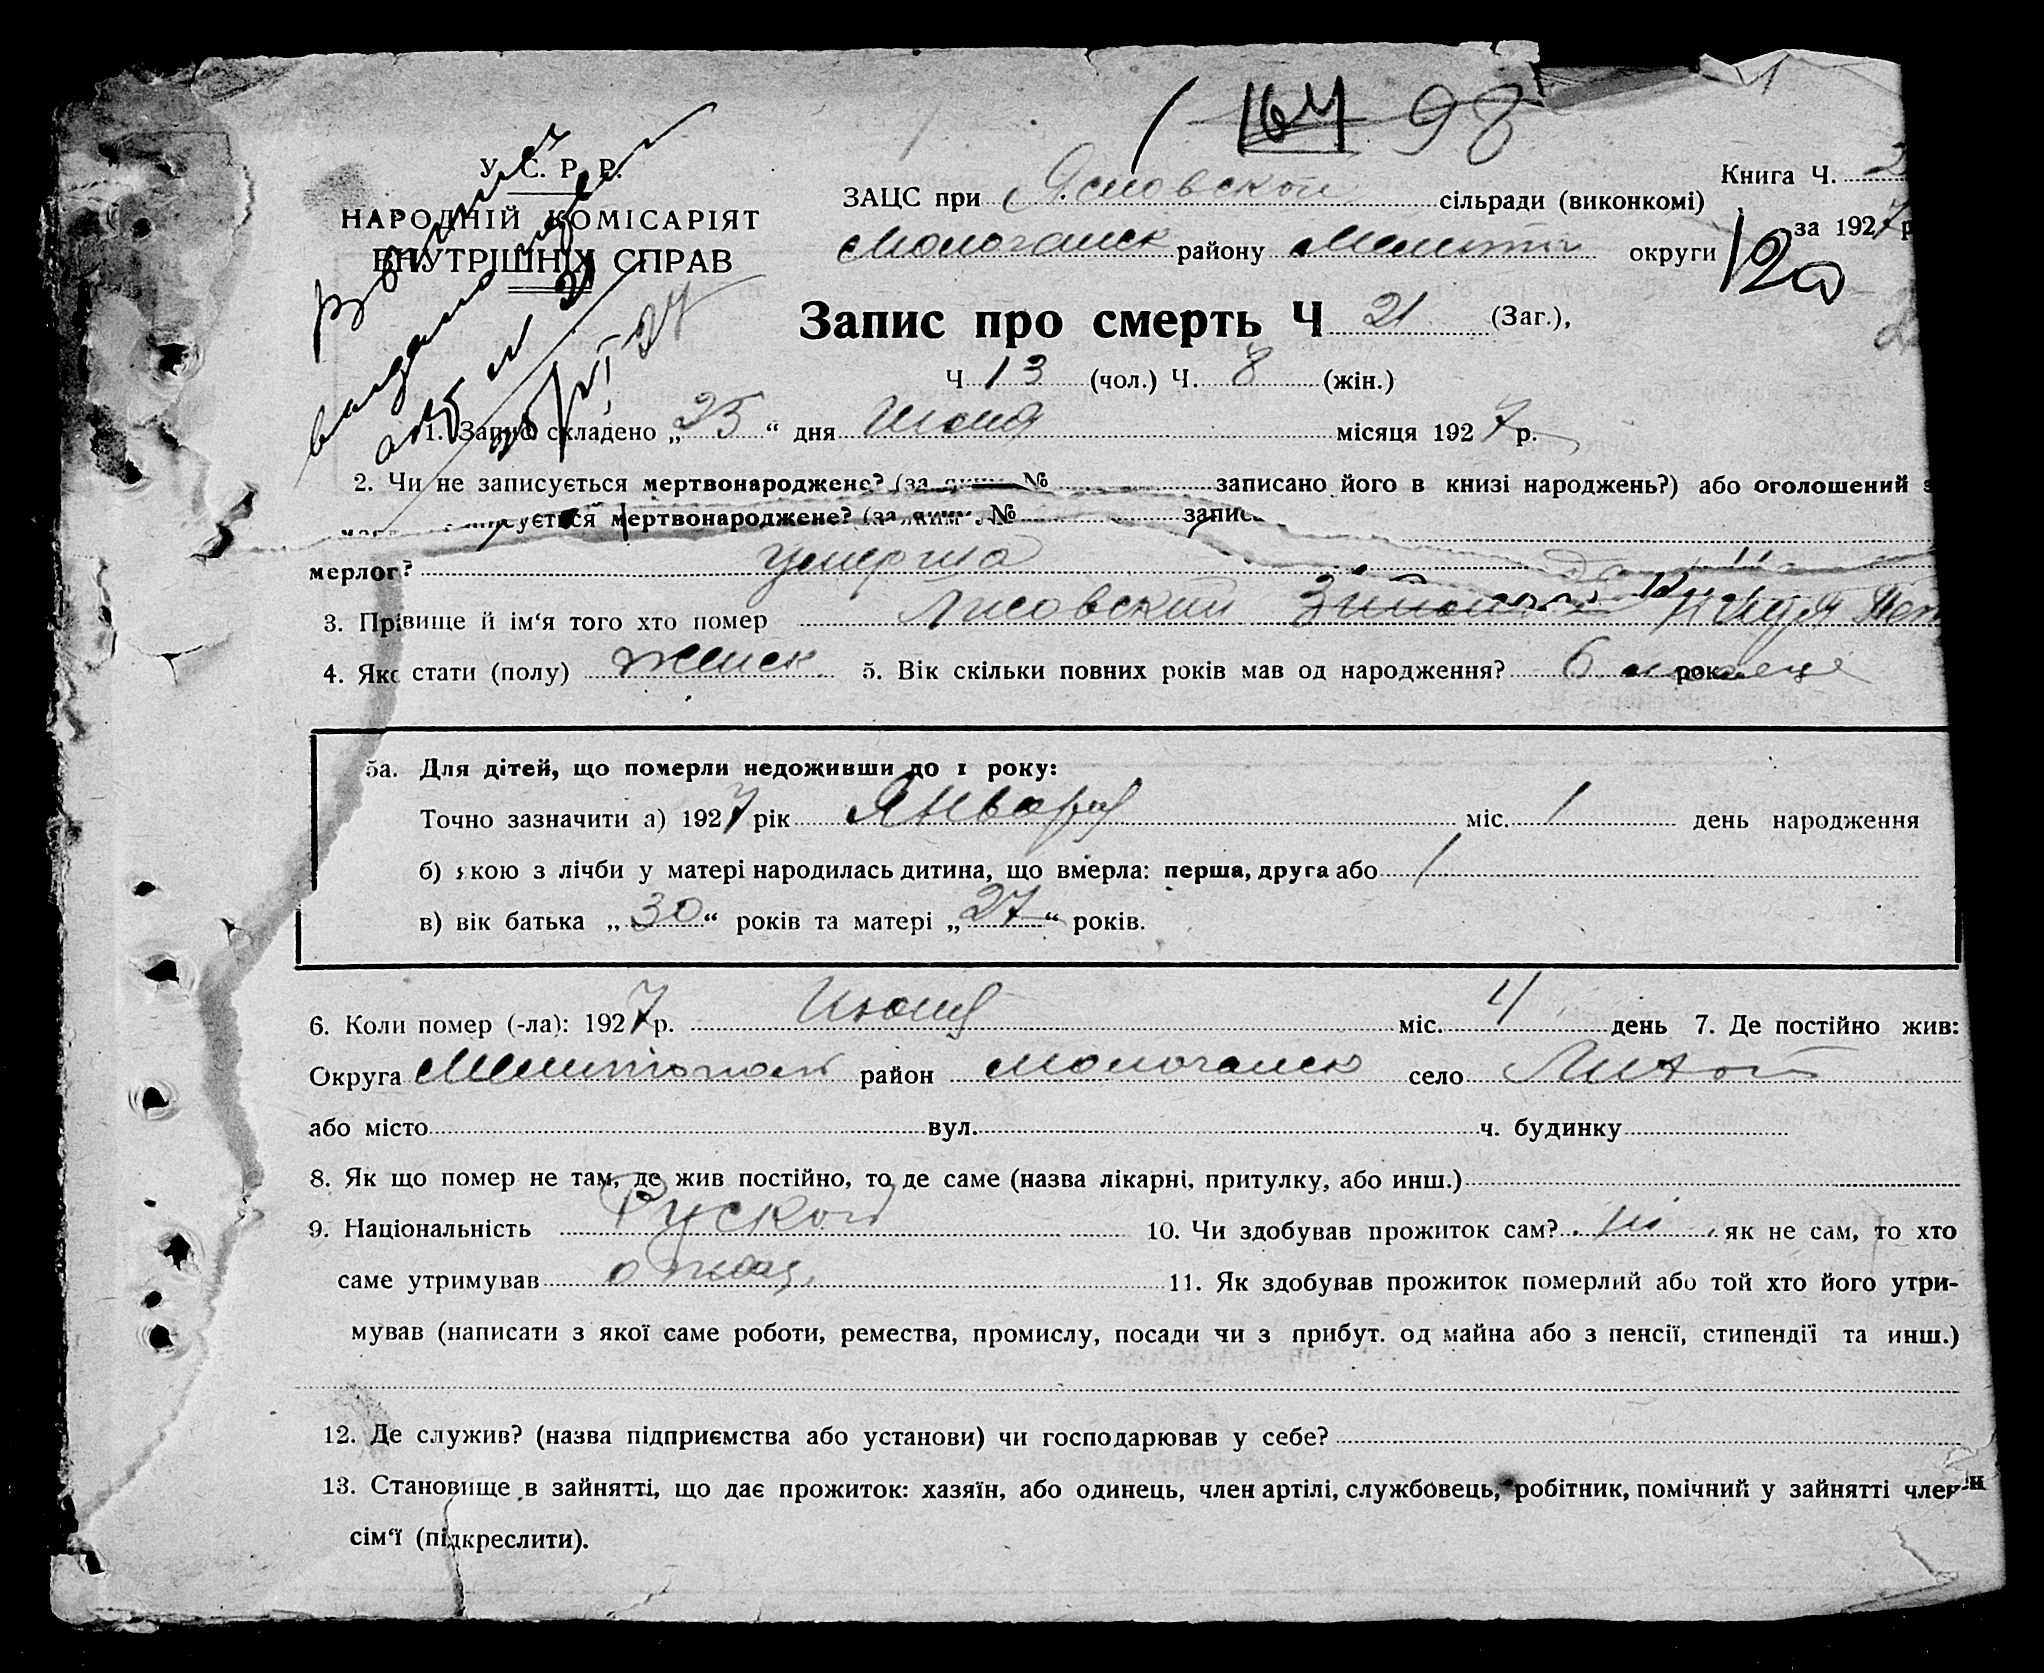 164 98
У. С. Р. Р.
НАРОДНІЙ КОМІСАРІЯТ
ВНУТРІШНІХ СПРАВ
Книга Ч.
ЗАЦС при сільради (виконкомі)
за 1927 р
районy округи
120
Запис про смерть Ч 21 (Заг.),
Ч 13 (чол.) Ч. 8 (жін.)
1. Запис складено „25“ дня Июня місяця 1927 р.
2. Чи не записується мертвонароджене? (за яким № записано його в книзі народжень?) або оголошений з
исується мертвонароджене? (за яким № запис
мерлог? умерша
3. Прізвище й ім‘я того хто помер Лисовский
4. Якої стати (полу) женск. 5. Вік скільки повних років мав од народження? 6 месяце рок
5а. Для дітей, що померли недоживши до 1 року:
Точно зазначити а) 1927 рік Января міс. 1 день народження
б) якою з лічби у матері народилась дитина, що вмерла: перша, друга або 1
в) вік батька „30“ років та матері „27“ років.
6. Коли помер (-ла): 1927 р. Июня міс. 4 день 7. Де постійно жив:
Округа Мелитопол район Молочанск село
або місто вул. ч. будинку
8. Як що помер не там, де жив постійно, то де саме (назва лікарні, притулку, або инш.)
9. Національність Руской 10. Чи здобував прожиток сам? ні як не сам, то хто
саме утримував отец 11. Як здобував прожиток померлий або той хто його утри-
мував (написати з якої саме роботи, ремества, промислу, посади чи з прибут. од майна або з пенсії, стипендії та инш.)
12. Де служив? (назва підприємства або установи) чи господарював у себе?
13. Становище в зайнятті, що дає прожиток: хазяїн, або одинець, член артілі, службовець, робітник, помічний у зайнятті член
сім‘ї (підкреслити).